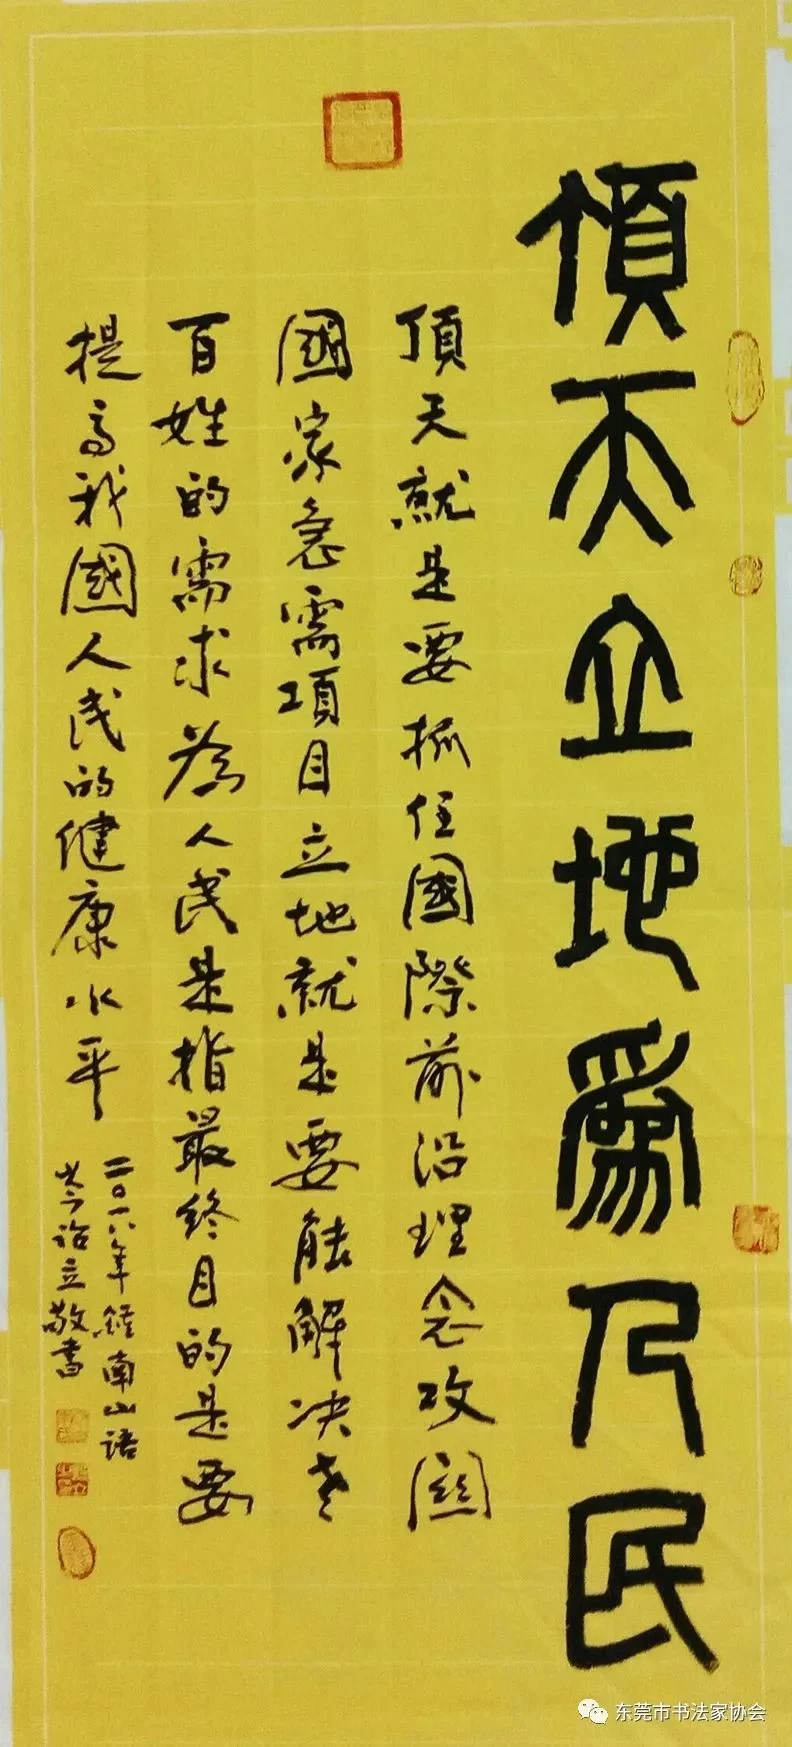 頂天立地爲人民
頂天就是要抓住國際前沿理念攻關
國家急需項目立地就是要能解决老
百姓的需求為人民是指最終目的是要
提高我國人民的健康水平
二〇一八年鍾南山語
岑詒立敬書
东莞市书法家协会